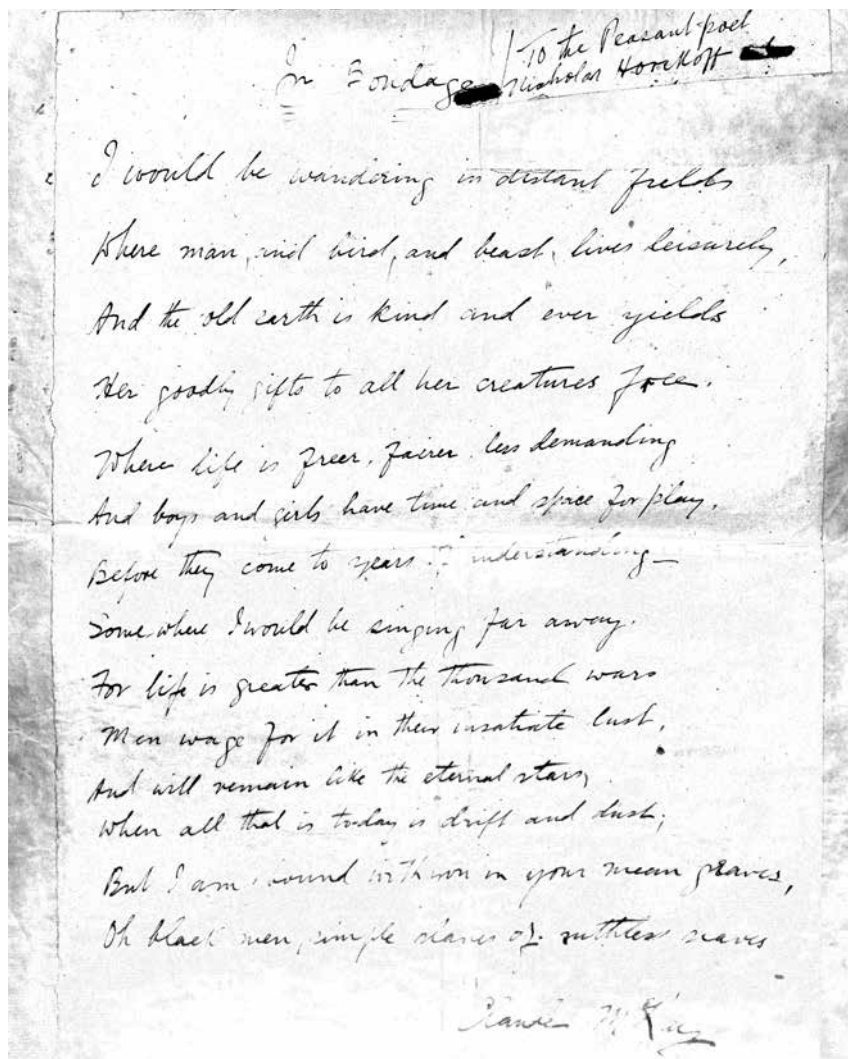 In Bondage
To the Peasant-poet
Nicholas
I would be wandering in distant fields
Where man, and bird, and beast, lives leisurely,
And the old earth is kind and ever yields
Her goodly gifts to all her creatures free.
Where life is freer, fairer, less demanding
And boys and girls have time and space for play.
Before they come to years understanding—
Somewhere I would be singing far away.
For life is greater than the thousand wars
Men wage for it in their insatiate lust,
And will remain like the eternal stars,
When all that is today is drift and dust;
But I am bound with you in your mean graves,
Oh black men, simple slaves of ruthless slaves
Claude McKay